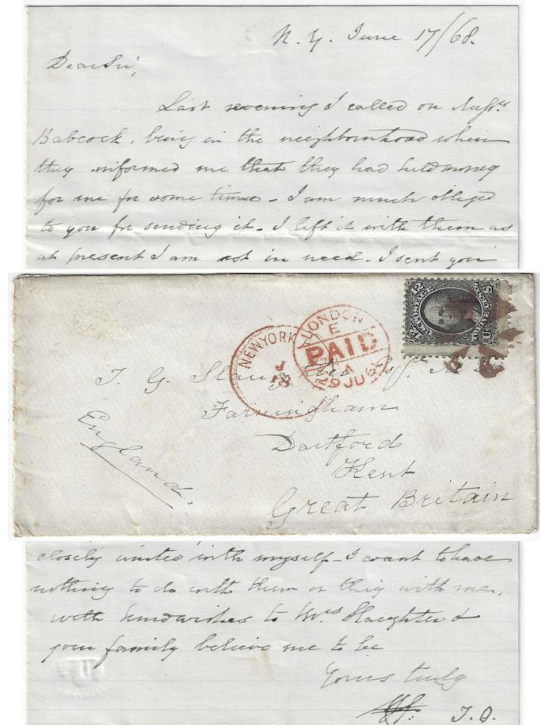 N. Y. June 17/68.
Dear Sir,
Last evening I called on Messrs
Babcock, being in the neighbourhood when
they informed me that they had held money
for me for some time - I am much obliged
to you for sending it - I left it with them as
at present I am not in need. I sent you
NEW YORK
J
18
LONDON
E
PAID
9 JU
12
U
T. G. Slaughter
Farningham
Dartford
Kent
Great Britain
England.
closely united with myself - I want to have
nothing to do with them or they with me.
with kind wishes to Mrs Slaughter &
your family believe me to be
Yours truly
J. O.